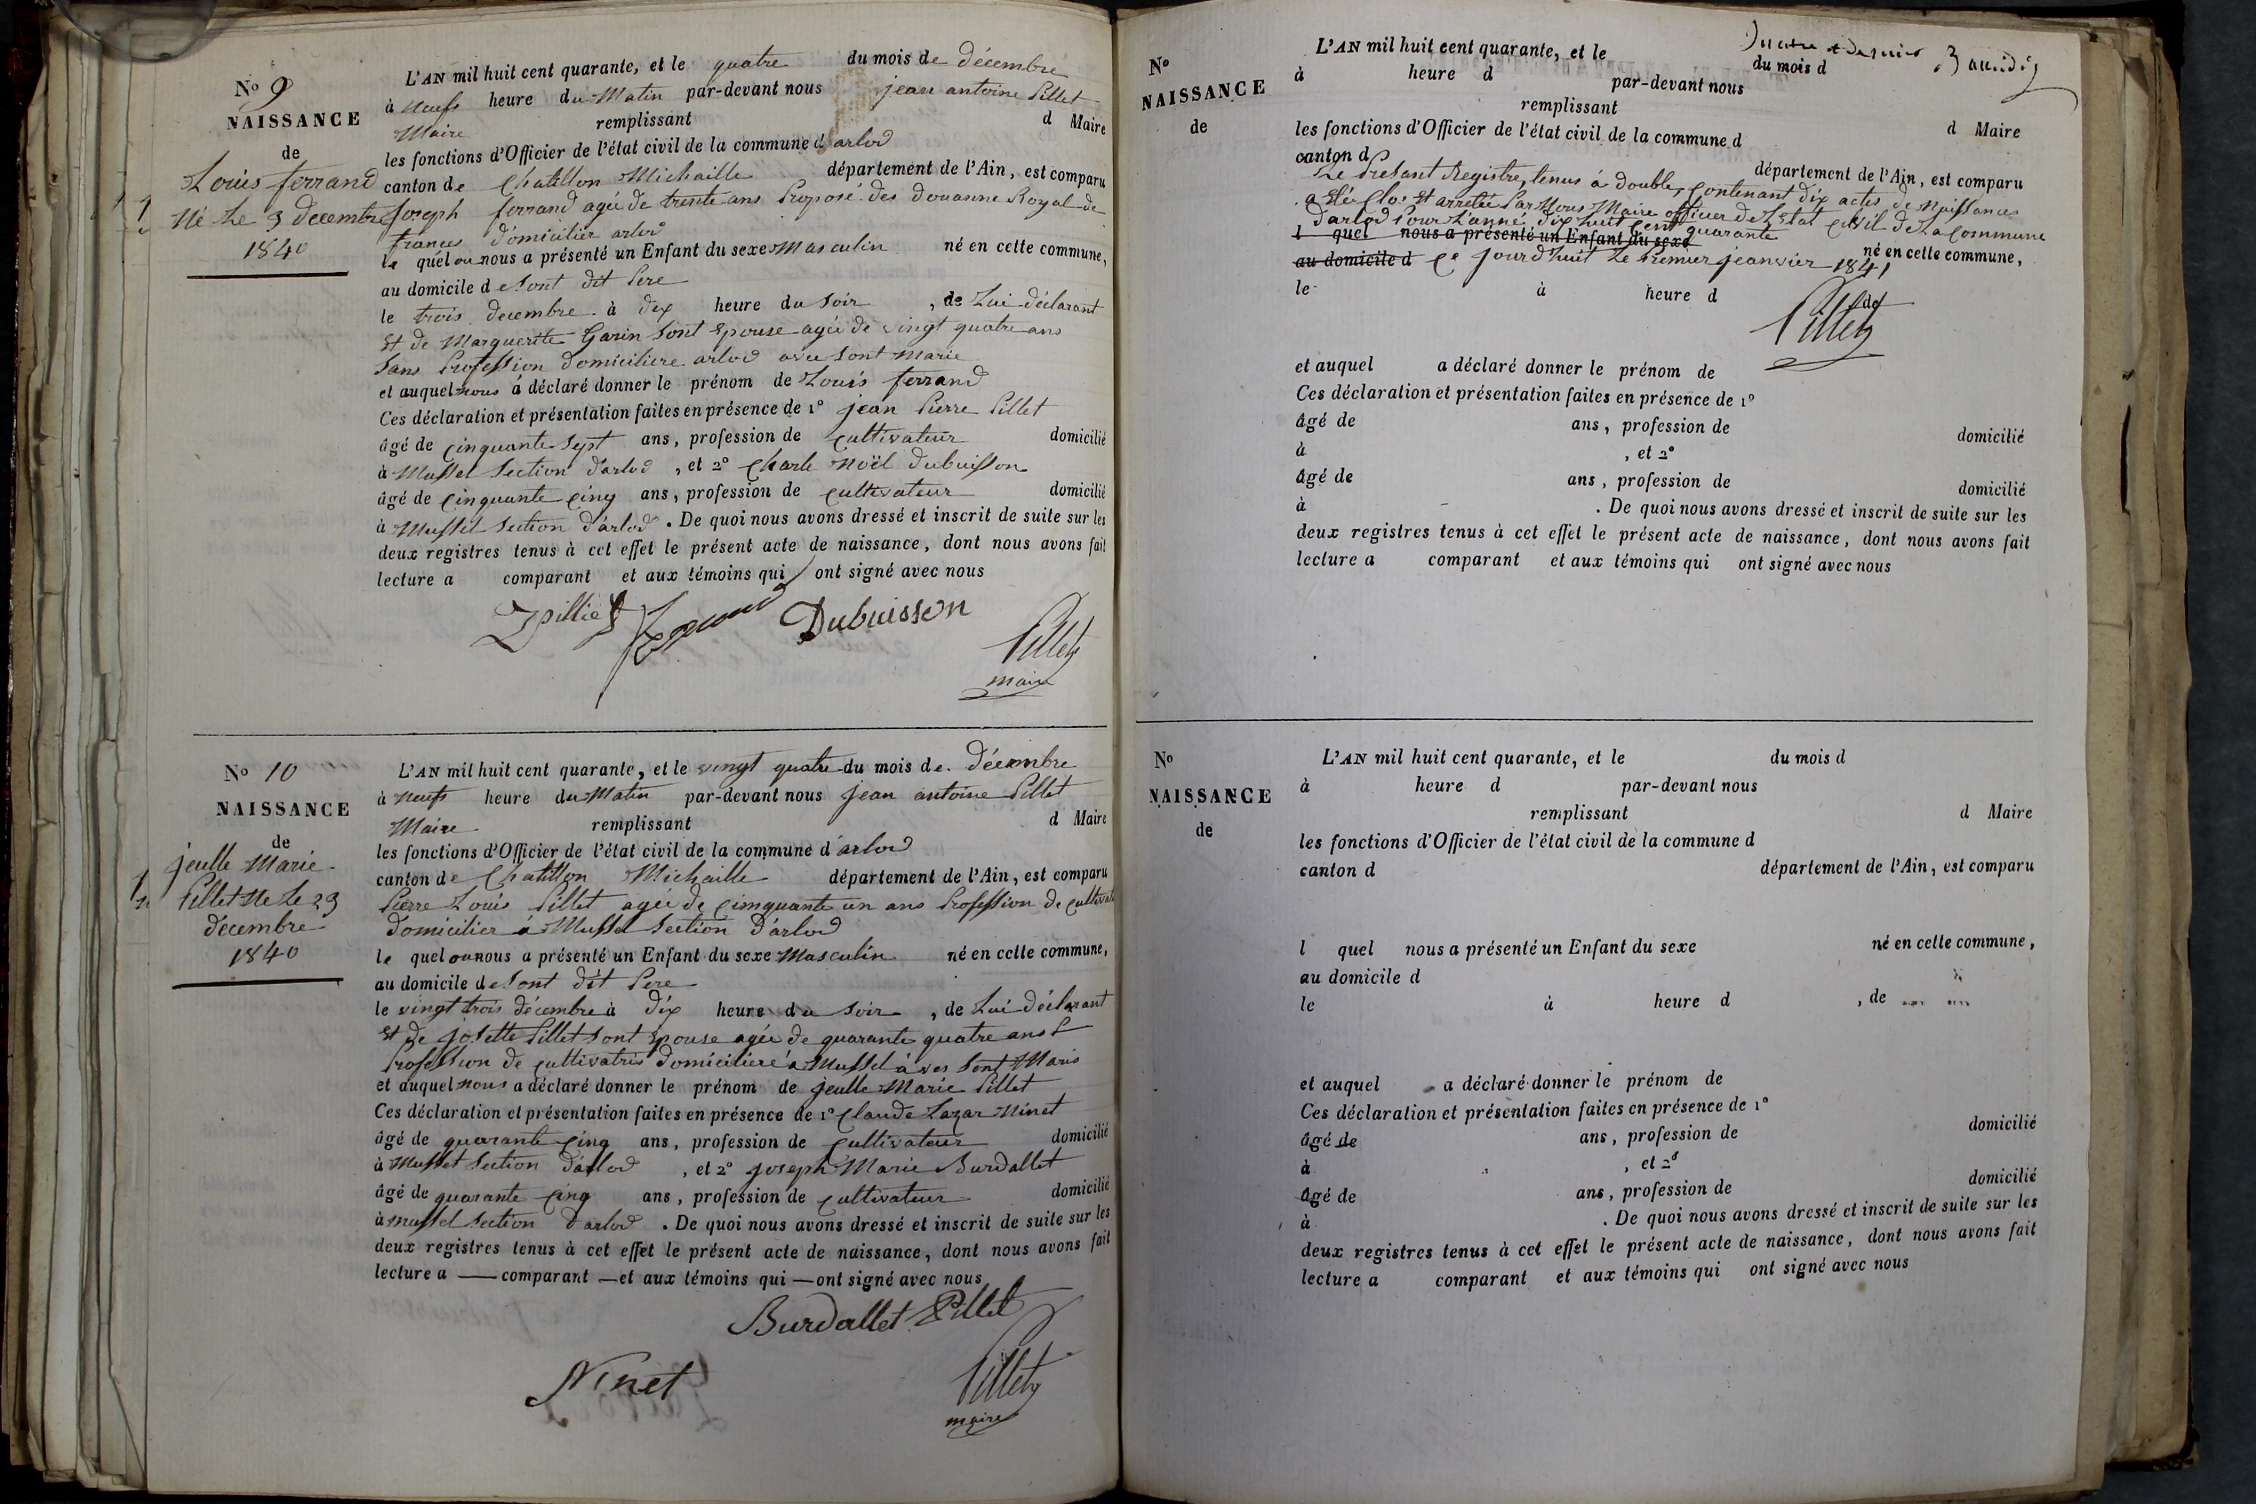 No 9
NAISSANCE
de
Louis ferrand
Né Le 3 decembre
1840
L'AN mil huit cent quarante, et le quatre du mois de décembre
à neufs heure du Matin par-devant nous jean antoine Pillet
Maire remplissant d Maire
les fonctions d'Officier de l'état civil de la commune d'arlod
canton de Chatillon Michaille département de l'Ain, est comparu
Joseph ferrand agée de trente ans Proposé des Douanne Royal de
frances domicilier arlod
le quel ou nous a présenté un Enfant du sexe Masculin né en cette commune,
au domicile de Sont dit Pere
le trois decembre à dix heure du Soir, de Lui déclarant
Et de Marguerite Garin Sont Epouse agée de vingt quatre ans
Sans Profession domiciliere arlod avec Sont Marie
et auquel nous a déclaré donner le prénom de Louis ferrand
Ces déclaration et présentation faites en présence de 1° jean Pierre Pillet
âgé de Cinquante Sept ans, profession de Cultivateur domicilié
à Mussel Section d'arlod, et 2° Charle Noël Dubuisson
âgé de Cinquante Cinq ans, profession de Cultivateur domicilié
à Mussel Section d'arlod. De quoi nous avons dressé et inscrit de suite sur les
deux registres tenus à cet effet le présent acte de naissance, dont nous avons fait
lecture a comparant et aux témoins qui ont signé avec nous
Dubuisson
Pillet
maire
No 10
NAISSANCE
de
jeulle Marie
Pillet Ne Le 23
decembre
1840
L'AN mil huit cent quarante, et le vingt quatre du mois de Décembre
à neufs heure du Matin par-devant nous jean antoine Pillet
Maire remplissant d Maire
les fonctions d'Officier de l'état civil de la commune d'arlod
canton de Chatillon Michaille département de l'Ain, est comparu
Pierre Louis Pillet agée de Cinquante un ans Profession de Cultivate
Domicilier à Mussel Section d'arlod
le quel ou nous a présenté un Enfant du sexe Masculin né en cette commune,
au domicile de Sont dit Pere
le vingt trois décembre à dix heure du Soir, de Lui déclarant
Et de josette Pillet Sont Epouse agée de quarante quatre ans
Profession de Cultivatris Domiciliere à Mussel à ves Sont Maris
et auquel nous a déclaré donner le prénom de jeulle Marie Pillet
Ces déclaration et présentation faites en présence de 1° Claude Lazar Ninet
âgé de quarante Cinq ans, profession de Cultivateur domicilié
à Mussel Section d'arlod, et 2° joseph Marie Burdallet
âgé de quarante Cinq ans, profession de Cultivateur domicilié
à mussel Section d'arlod. De quoi nous avons dressé et inscrit de suite sur les
deux registres tenus à cet effet le présent acte de naissance, dont nous avons fait
lecture a comparant et aux témoins qui ont signé avec nous
Burdallet Pillet
Ninet
Pillet
maire
No
NAISSANCE
de
L'AN mil huit cent quarante, et le du mois d
à heure d par-devant nous
remplissant d Maire
les fonctions d'Officier de l'état civil de la commune d
canton d département de l'Ain, est comparu
Le Presant Registre, tenus à double, Contenant dix actes de Naissances
a été Clos Et arretée Par Nous Maire officier de L'Etat Civil de La Commune
d'arlod Pour L'année dix huit Cent quarante
l quel nous a présenté un Enfant du sexe né en cette commune,
au domicile d Ce jourd'huit Le Premier jeanvier 1841
le à heure d, de
Pillet
et auquel a déclaré donner le prénom de
Ces déclaration et présentation faites en présence de 1°
âgé de ans, profession de domicilié
à, et 2°
âgé de ans, profession de domicilié
à. De quoi nous avons dressé et inscrit de suite sur les
deux registres tenus à cet effet le présent acte de naissance, dont nous avons fait
lecture a comparant et aux témoins qui ont signé avec nous
No
NAISSANCE
de
L'AN mil huit cent quarante, et le du mois d
à heure d par-devant nous
remplissant d Maire
les fonctions d'Officier de l'état civil de la commune d
canton d département de l'Ain, est comparu
l quel nous a présenté un Enfant du sexe né en cette commune,
au domicile d
le à heure d, de
et auquel a déclaré donner le prénom de
Ces déclaration et présentation faites en présence de 1°
âgé de ans, profession de domicilié
à, et 2°
âgé de ans, profession de domicilié
à. De quoi nous avons dressé et inscrit de suite sur les
deux registres tenus à cet effet le présent acte de naissance, dont nous avons fait
lecture a comparant et aux témoins qui ont signé avec nous